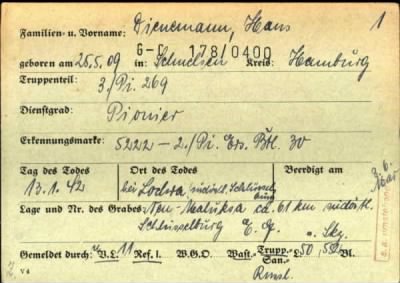 1
Familien- u. Vorname: Dienemann, Hans
G-A 178/0400
geboren am 26.5.09 in: Schnelsen Kreis: Hamburg
Truppenteil: 3./Pi. 269
Dienstgrad: Pionier
Erkennungsmarke: 5222 – 2./Pi. Ers. Btl. 30
Tag des Todes Ort des Todes Beerdigt am
13.1.42 bei Lodwa südöstl. Schlüssel-
burg
Lage und Nr. des Grabes: Neu-Maluksa ca. 61 km südöstl.
Schlüsselburg E. G. Skz.
Gemeldet durch: V.L. 11 Ref. I. W.G.O. Wast.- Trupp.- L 50, Bl.
San.-
Russl.
V 4